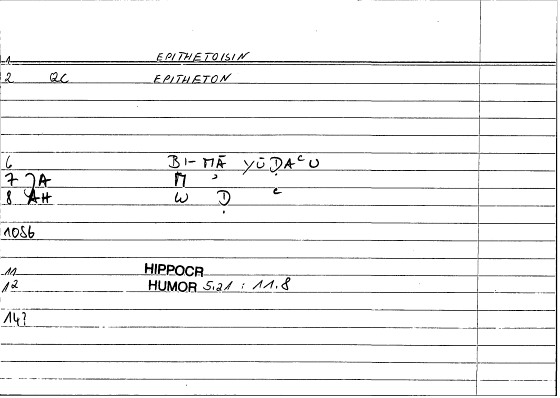 1 EPITHETOISIN
2 QC EPITHETON
6 BI-MĀ YŪḌAʿU
7 JA M ʾ
8 AH W Ḍ ʿ
1056
11 HIPPOCR
12 HUMOR 5.21 : 11.8
14?